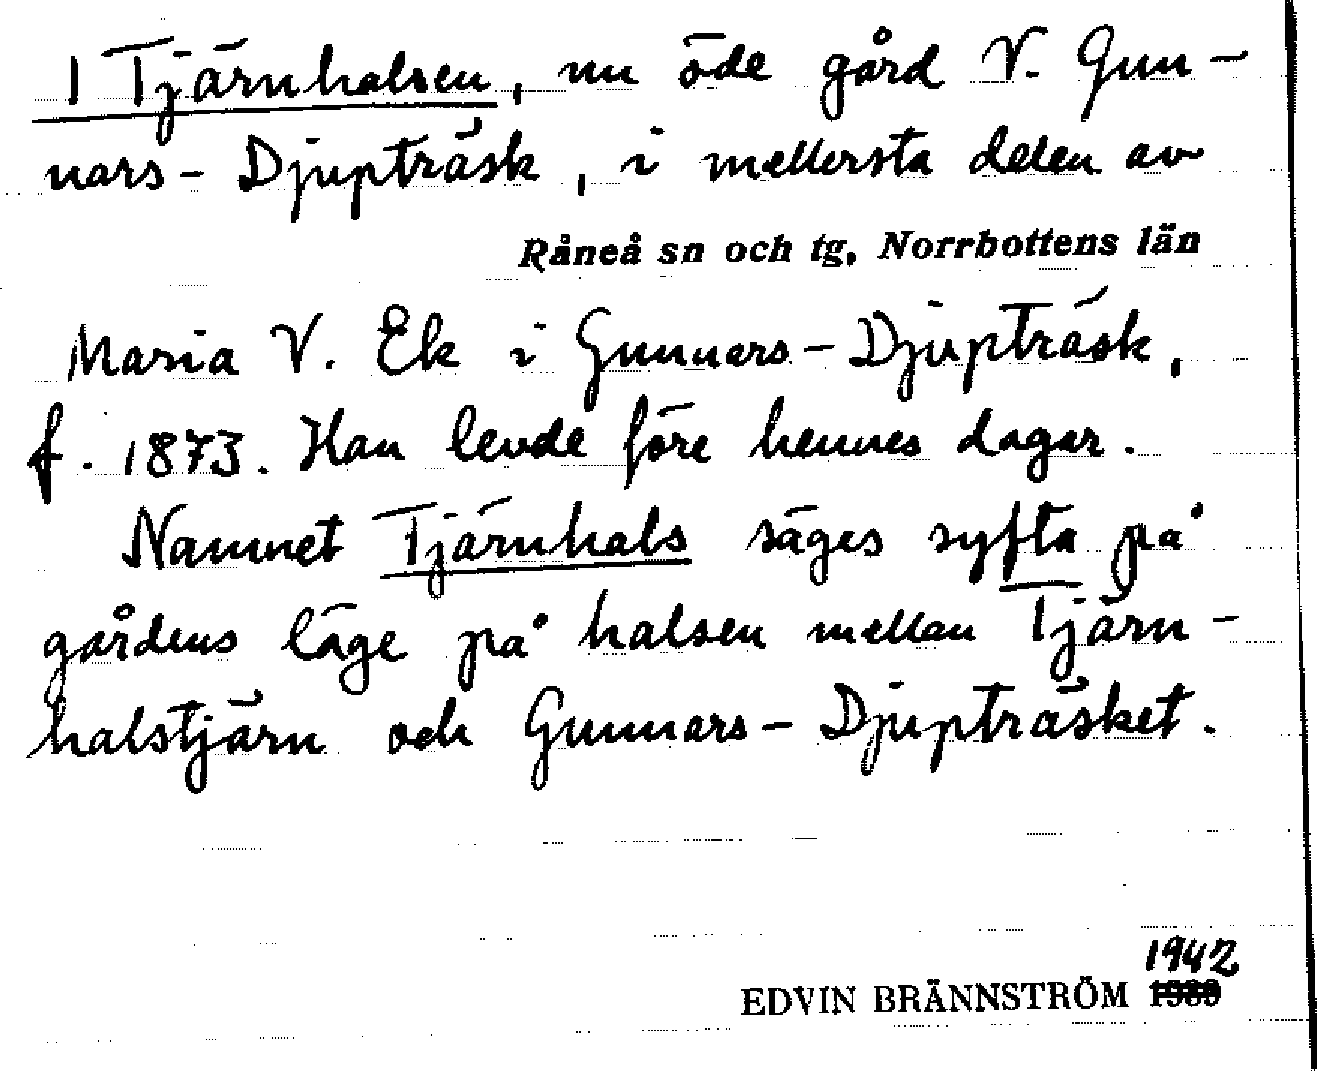 I Tjärnhalsen, nu öde gård V. Gun-
nars-Djupträsk, i mellersta delen av
Råneå sn och tg, Norrbottens län
Maria V. Ek i Gunnars-Djupträsk,
f. 1873. Han levde före hennes dagar.
Namnet Tjärnhals säges syfta på
gårdens läge på halsen mellan Tjärn-
halstjärn och Gunnars-Djupträsket.
1942
EDVIN BRÄNNSTRÖM